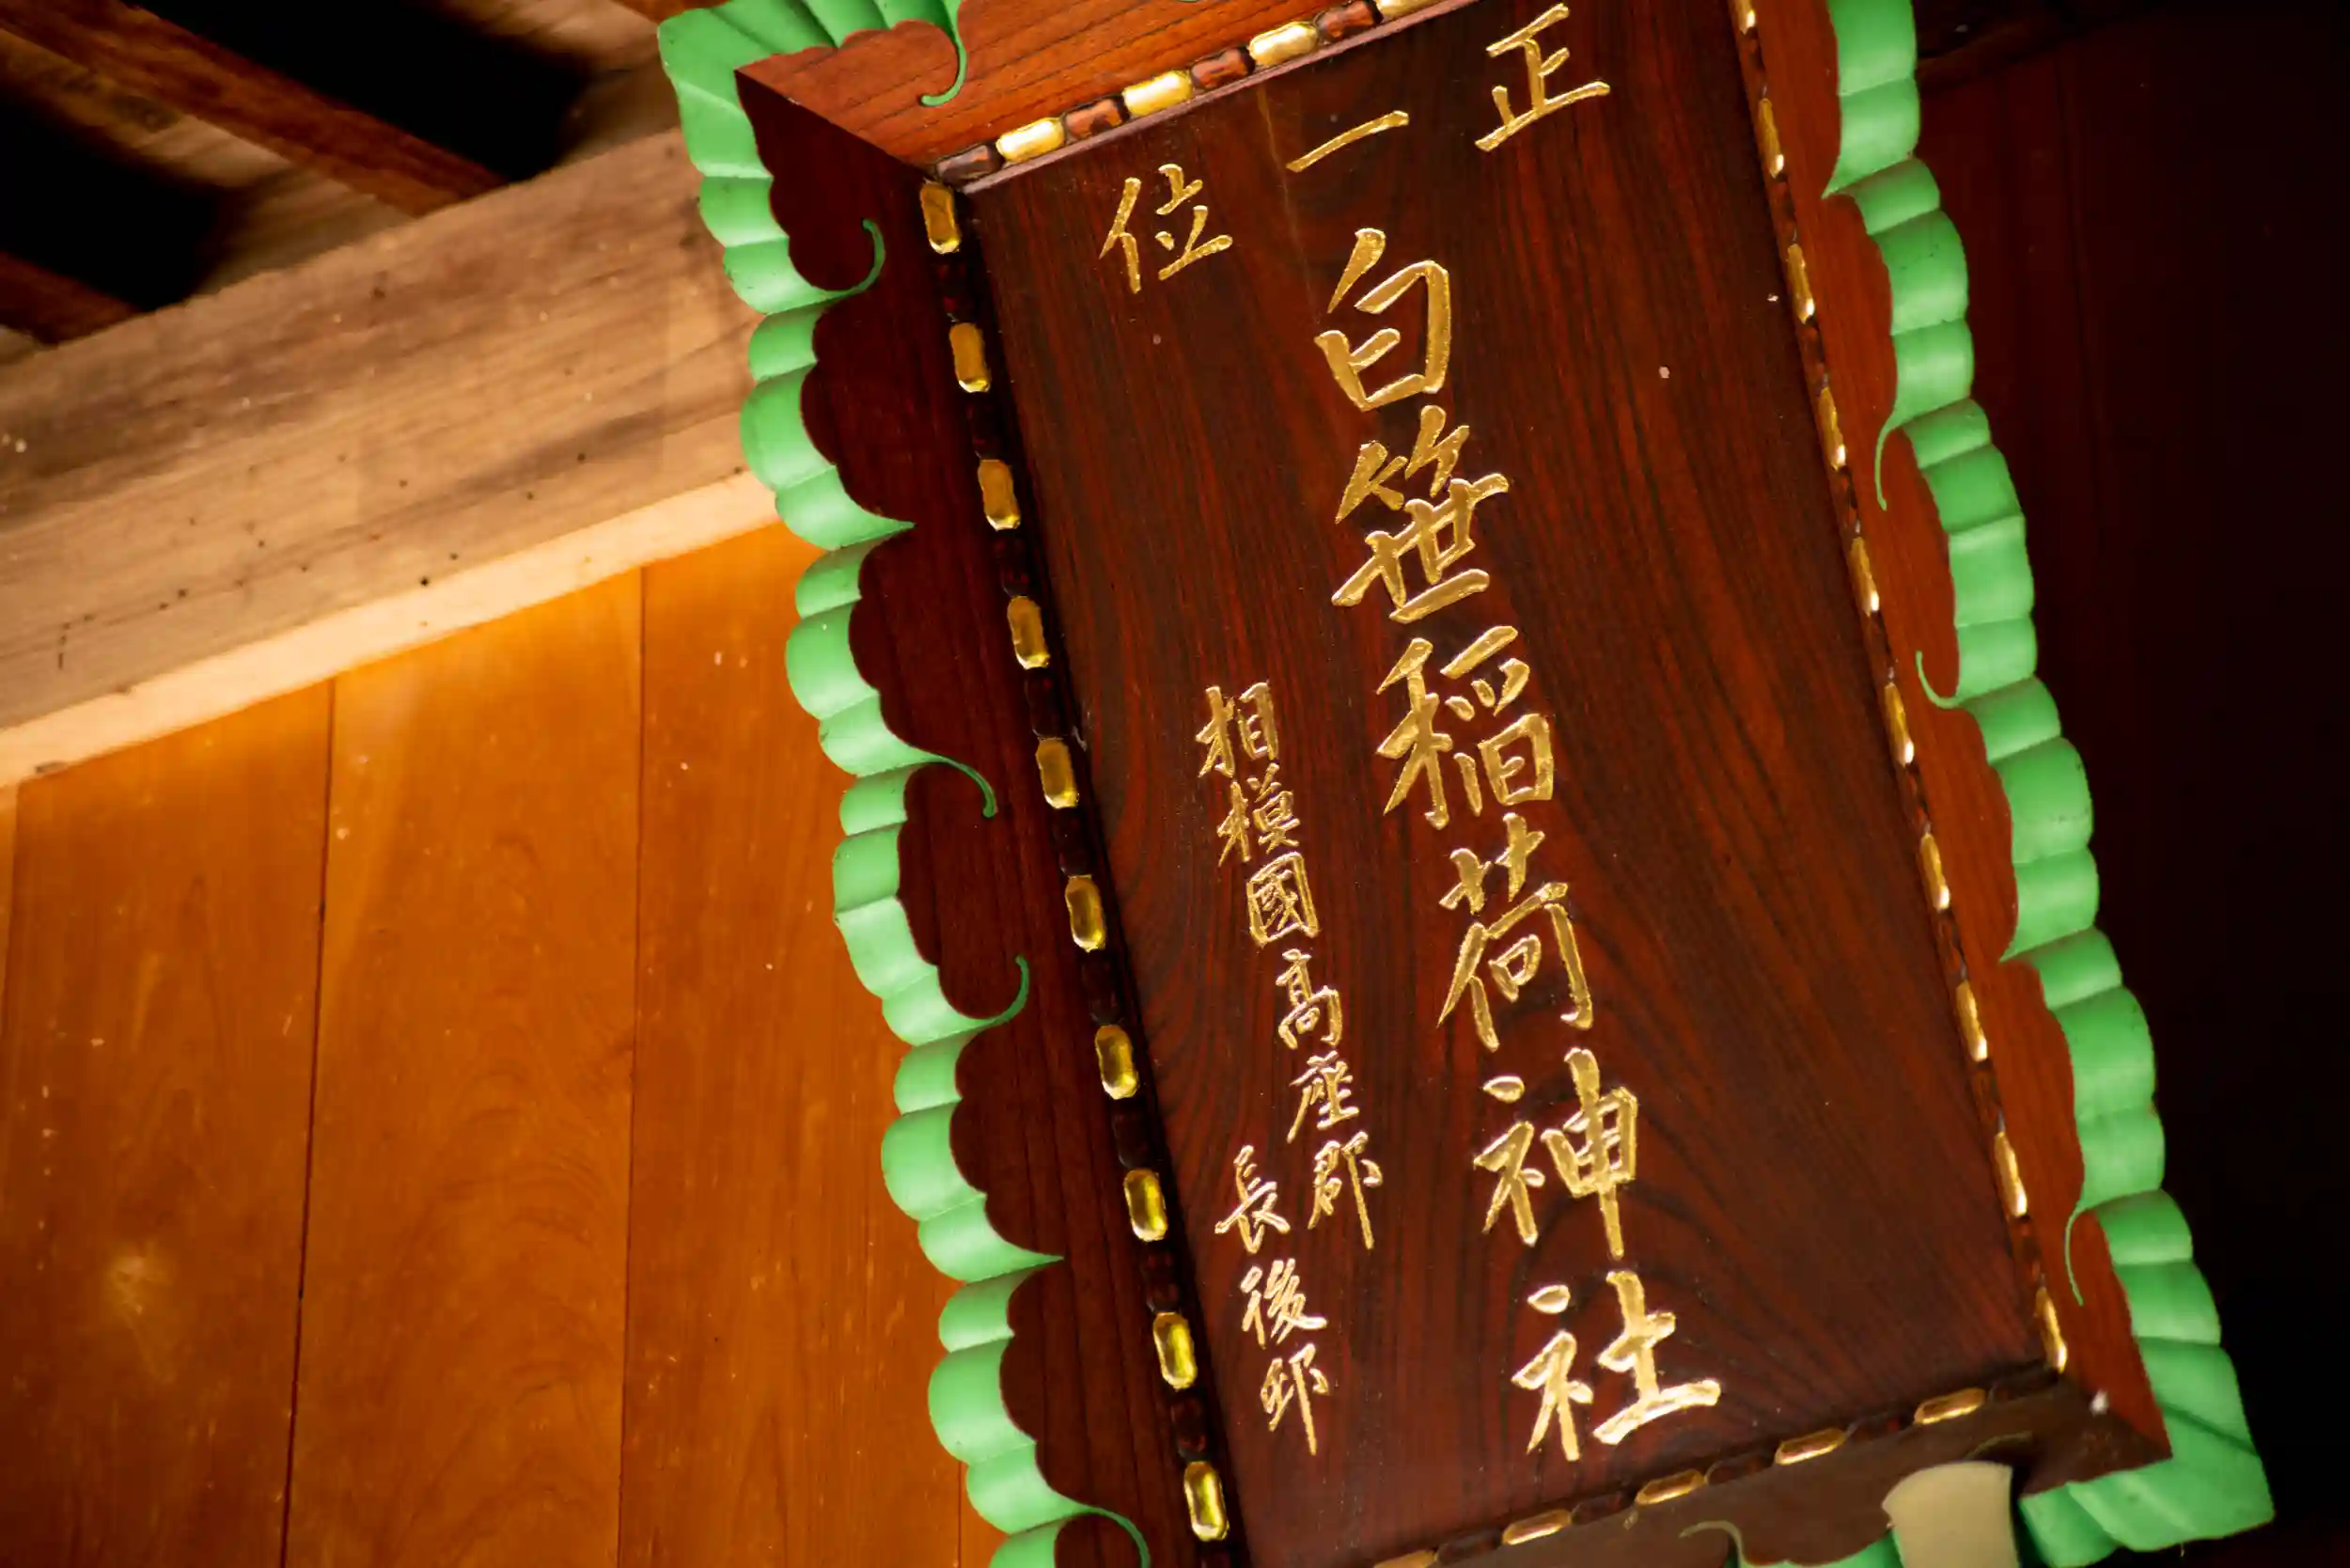 正一位
白笹稲荷神社
相模國高座郡
長後邸